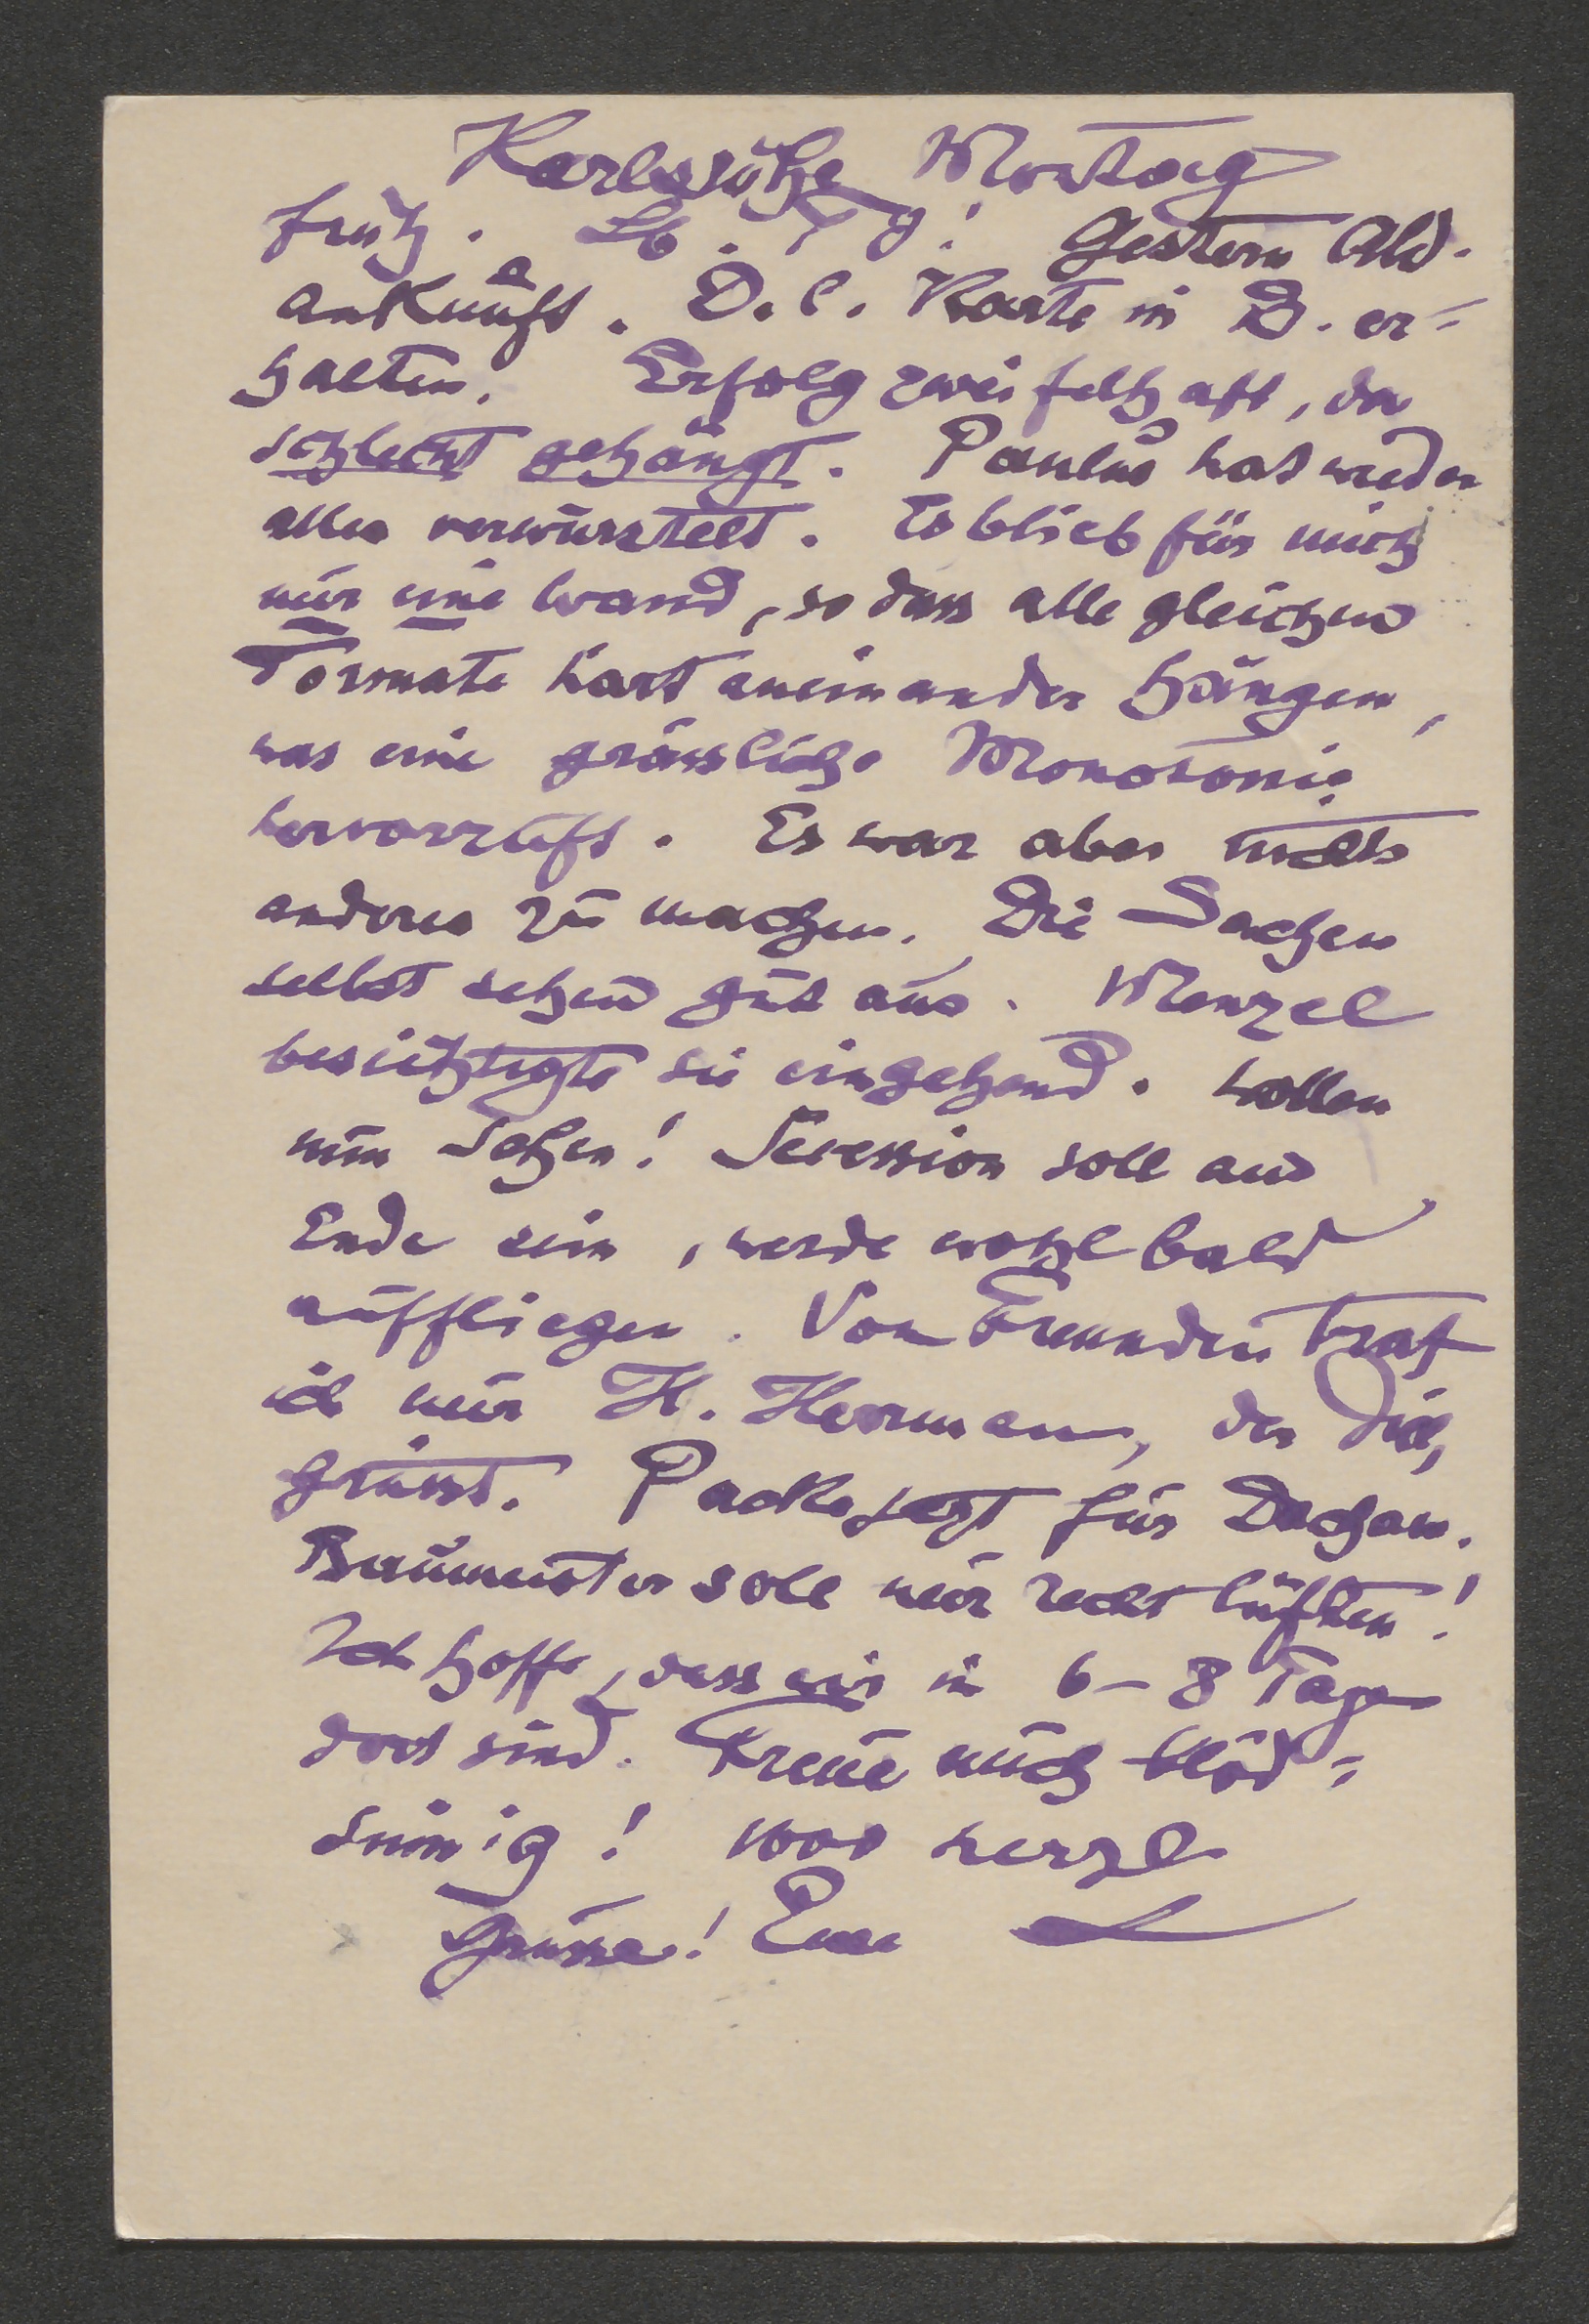 Karlsruhe Montag
früh. Lb. ! Gestern Abd.
Ankunft. D. l. Karte in B. er=
halten. Erfolg zweifelhaft, da
schlecht gehängt. Paulus hat wieder
alles verwurstelt. Es blieb für mich
nur eine Wand, so dass alle gleichen
Formate hart aneinander hängen,
was eine grässliche Monotonie
hervorruft. Es war aber nichts
anderes zu machen. Die Sachen
selbst sehen gut aus. Menzel
besichtigte sie eingehend. Wollen
nun sehen! Secession soll am
Ende sein, werde wohl bald
auffliegen. Von Freunden traf
ich nur H. Herrmann, der Dich
grüsst. Packe jetzt für Dachau.
Baumeister soll nur recht lüften!
Ich hoffe, dass wir in 6-8 Tage
dort sind. Freue mich blöd=
sinnig! 1000 herzl
Grüsse! Euer